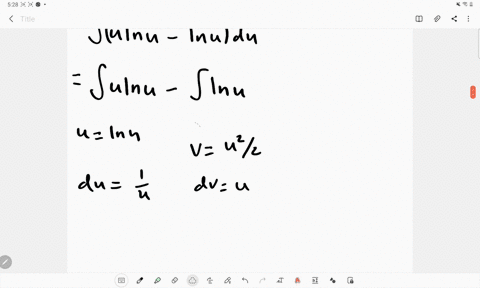 5:28
Title
∫(u ln u - ln u) du
= ∫ u ln u - ∫ ln u
u = ln u v = u²/2
du = 1/u dv = u